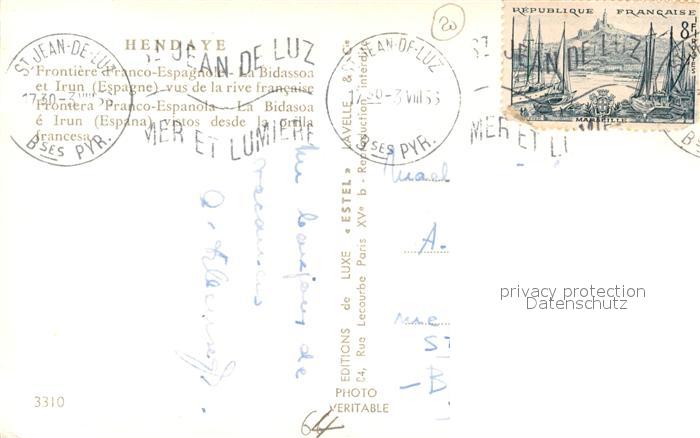 HENDAYE
Frontière Franco-Espagnole - La Bidassoa
et Irun (Espagne) vus de la rive française
Frontera Franco-Espanola - La Bidasoa
é Irun (Espana) vistos desde la orilla
francesa
3310
ST JEAN-DE-LUZ
17.30-3 VIII
BSES PYR.
ST JEAN DE LUZ
MER ET LUMIÈRE
ST JEAN-DE-LUZ
17.30-3 VIII 56
BSES PYR.
JEAN DE LUZ
MER ET LU
RÉPUBLIQUE FRANÇAISE
8F
MARSEILLE
20
Un bonjour de
vacances
EDITIONS de LUXE « ESTEL » LAVELLE & Cie
64, Rue Lecourbe Paris XVe b - Reproduction interdite
PHOTO
VERITABLE
64
A.
S
B
privacy protection
Datenschutz